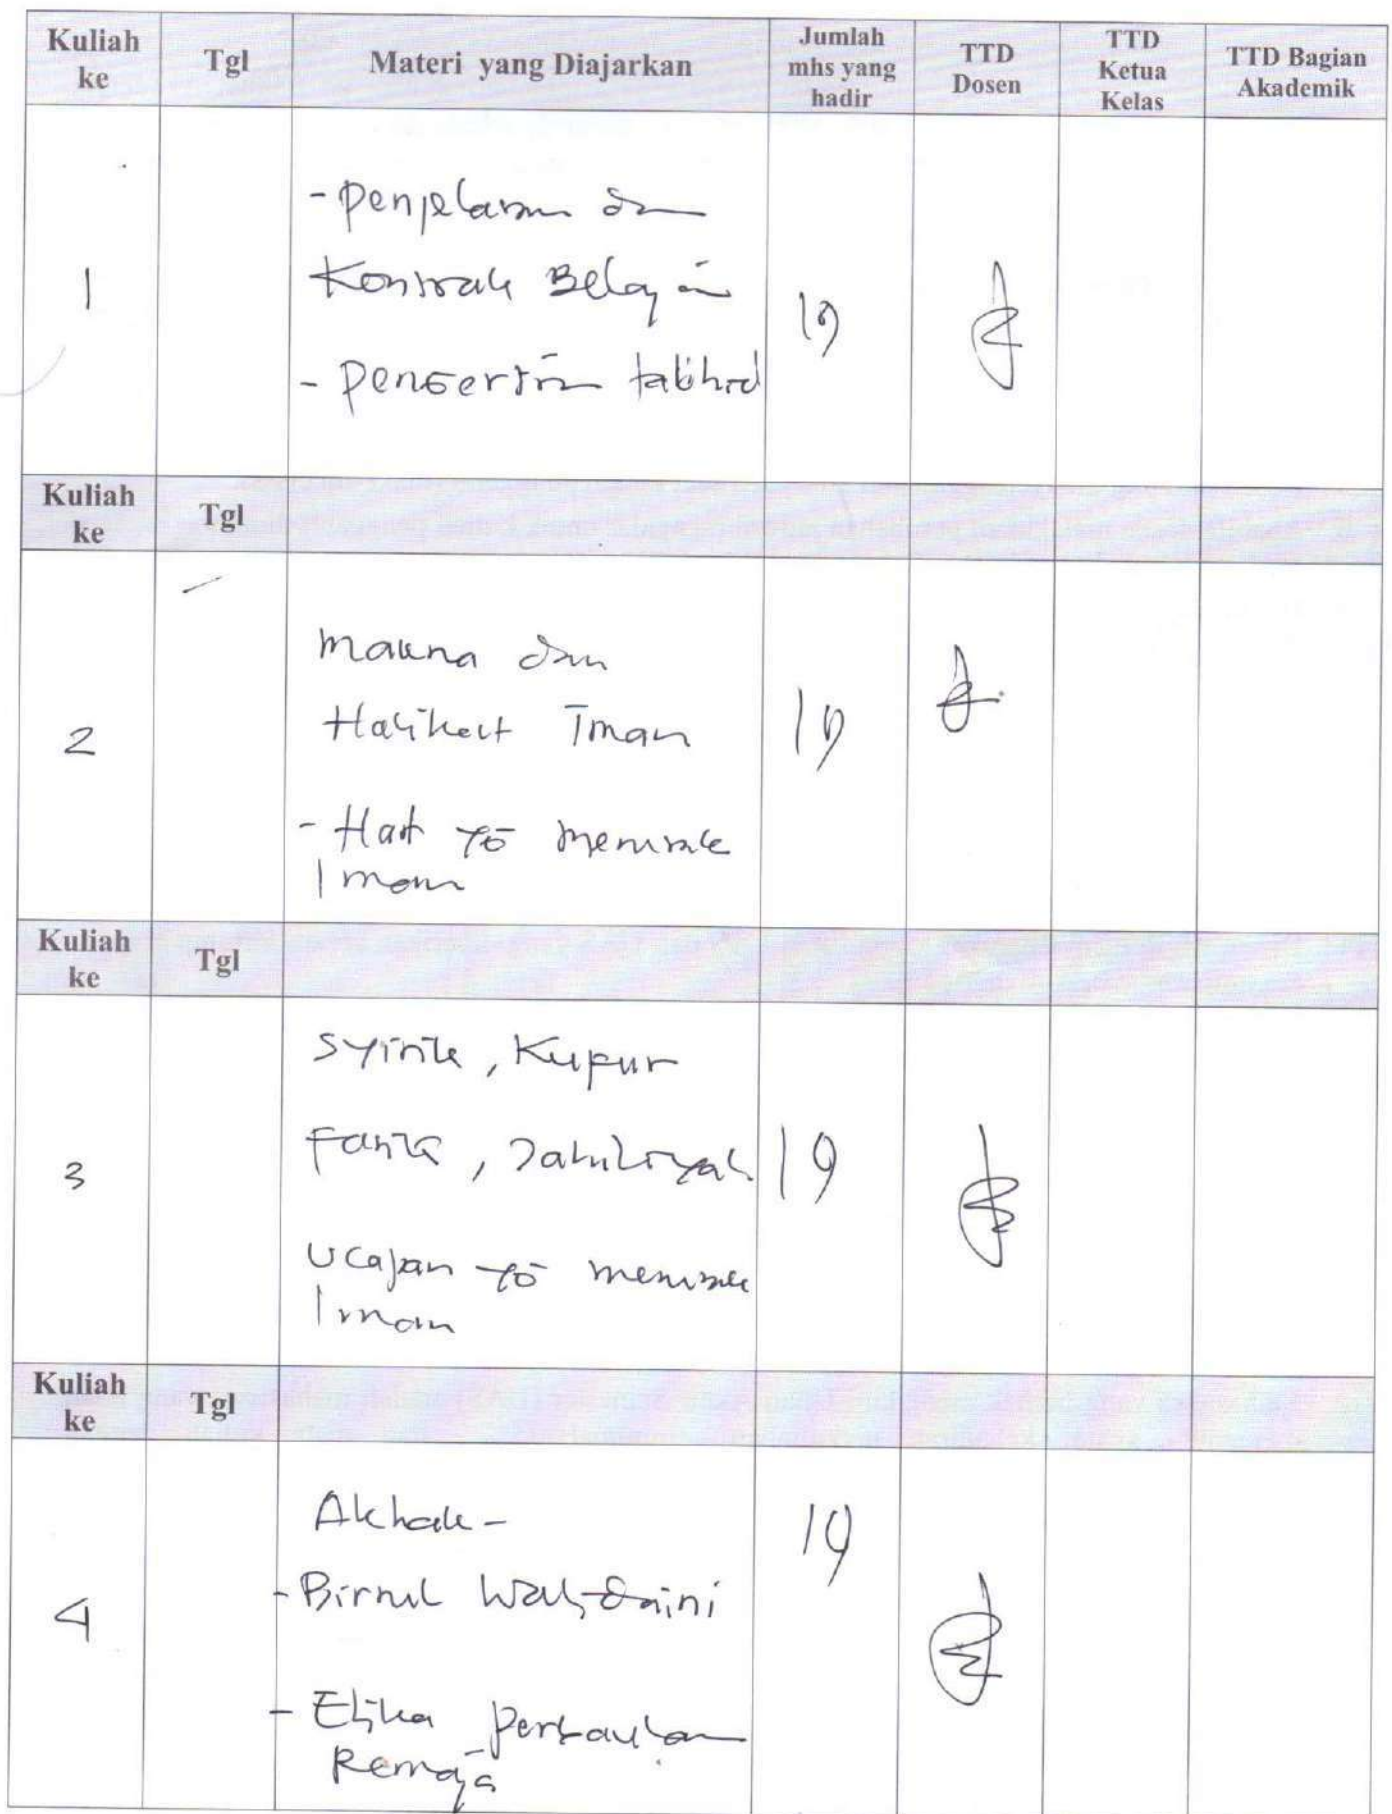 Kuliah ke Tgl Materi yang Diajarkan Jumlah mhs yang hadir TTD Dosen TTD Ketua Kelas TTD Bagian Akademik
- Penjelasan dan
1 Kontrak Belajar 19
- Pengertian tauhid
Kuliah ke Tgl
Makna dan
2 Hakikat Iman 19
- Hal yg merusak
Iman
Kuliah ke Tgl
Syirik, Kupur
3 Fasik, Jahiliyah 19
Ucapan yg merusak
Iman
Kuliah ke Tgl
Akhak - 19
4 - Birrul Walidaini
- Etika Pergaulan
Remaja